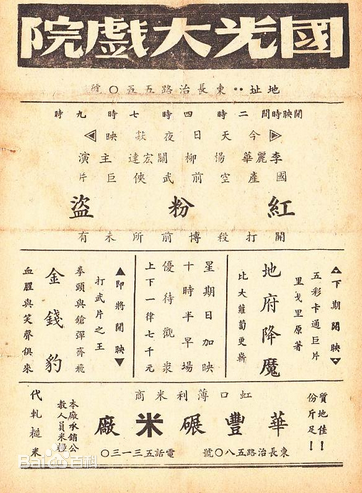 國光大戲院
地址：東長治路五五〇號
開映時間 二時 四時 七時 九時
◀今天日夜獻映▶
李麗華 楊柳 關宏達 主演
國產空前武俠巨片
紅粉盜
開打殺搏前所未有
▲下期開映▼
五彩卡通巨片
里戈里原著
地府降魔
比大蘿蔔更新
星期日加映
十時半早場
優待觀衆
上下一律七千元
▲即將開映▼
打武片之王
拳頭與鎗彈齊飛
金錢豹
血腥與笑聲俱來
質地佳！
份斤足！
虹口薄利米商
華豐碾米廠
東長治路五八〇號 電話五三一三〇
本廠承銷公
教人員米
代軋糙米
Baidu百科